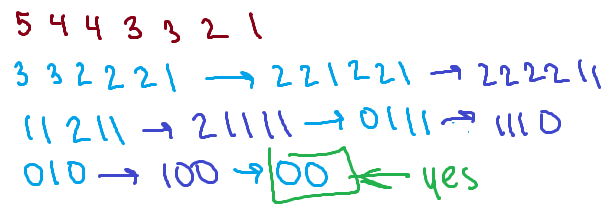 5 4 4 3 3 2 1
3 3 2 2 2 1 → 2 2 1 2 2 1 → 2 2 2 2 1 1
1 1 2 1 1 → 2 1 1 1 1 → 0 1 1 1 → 1 1 1 0
0 1 0 → 1 0 0 → 0 0 ← yes